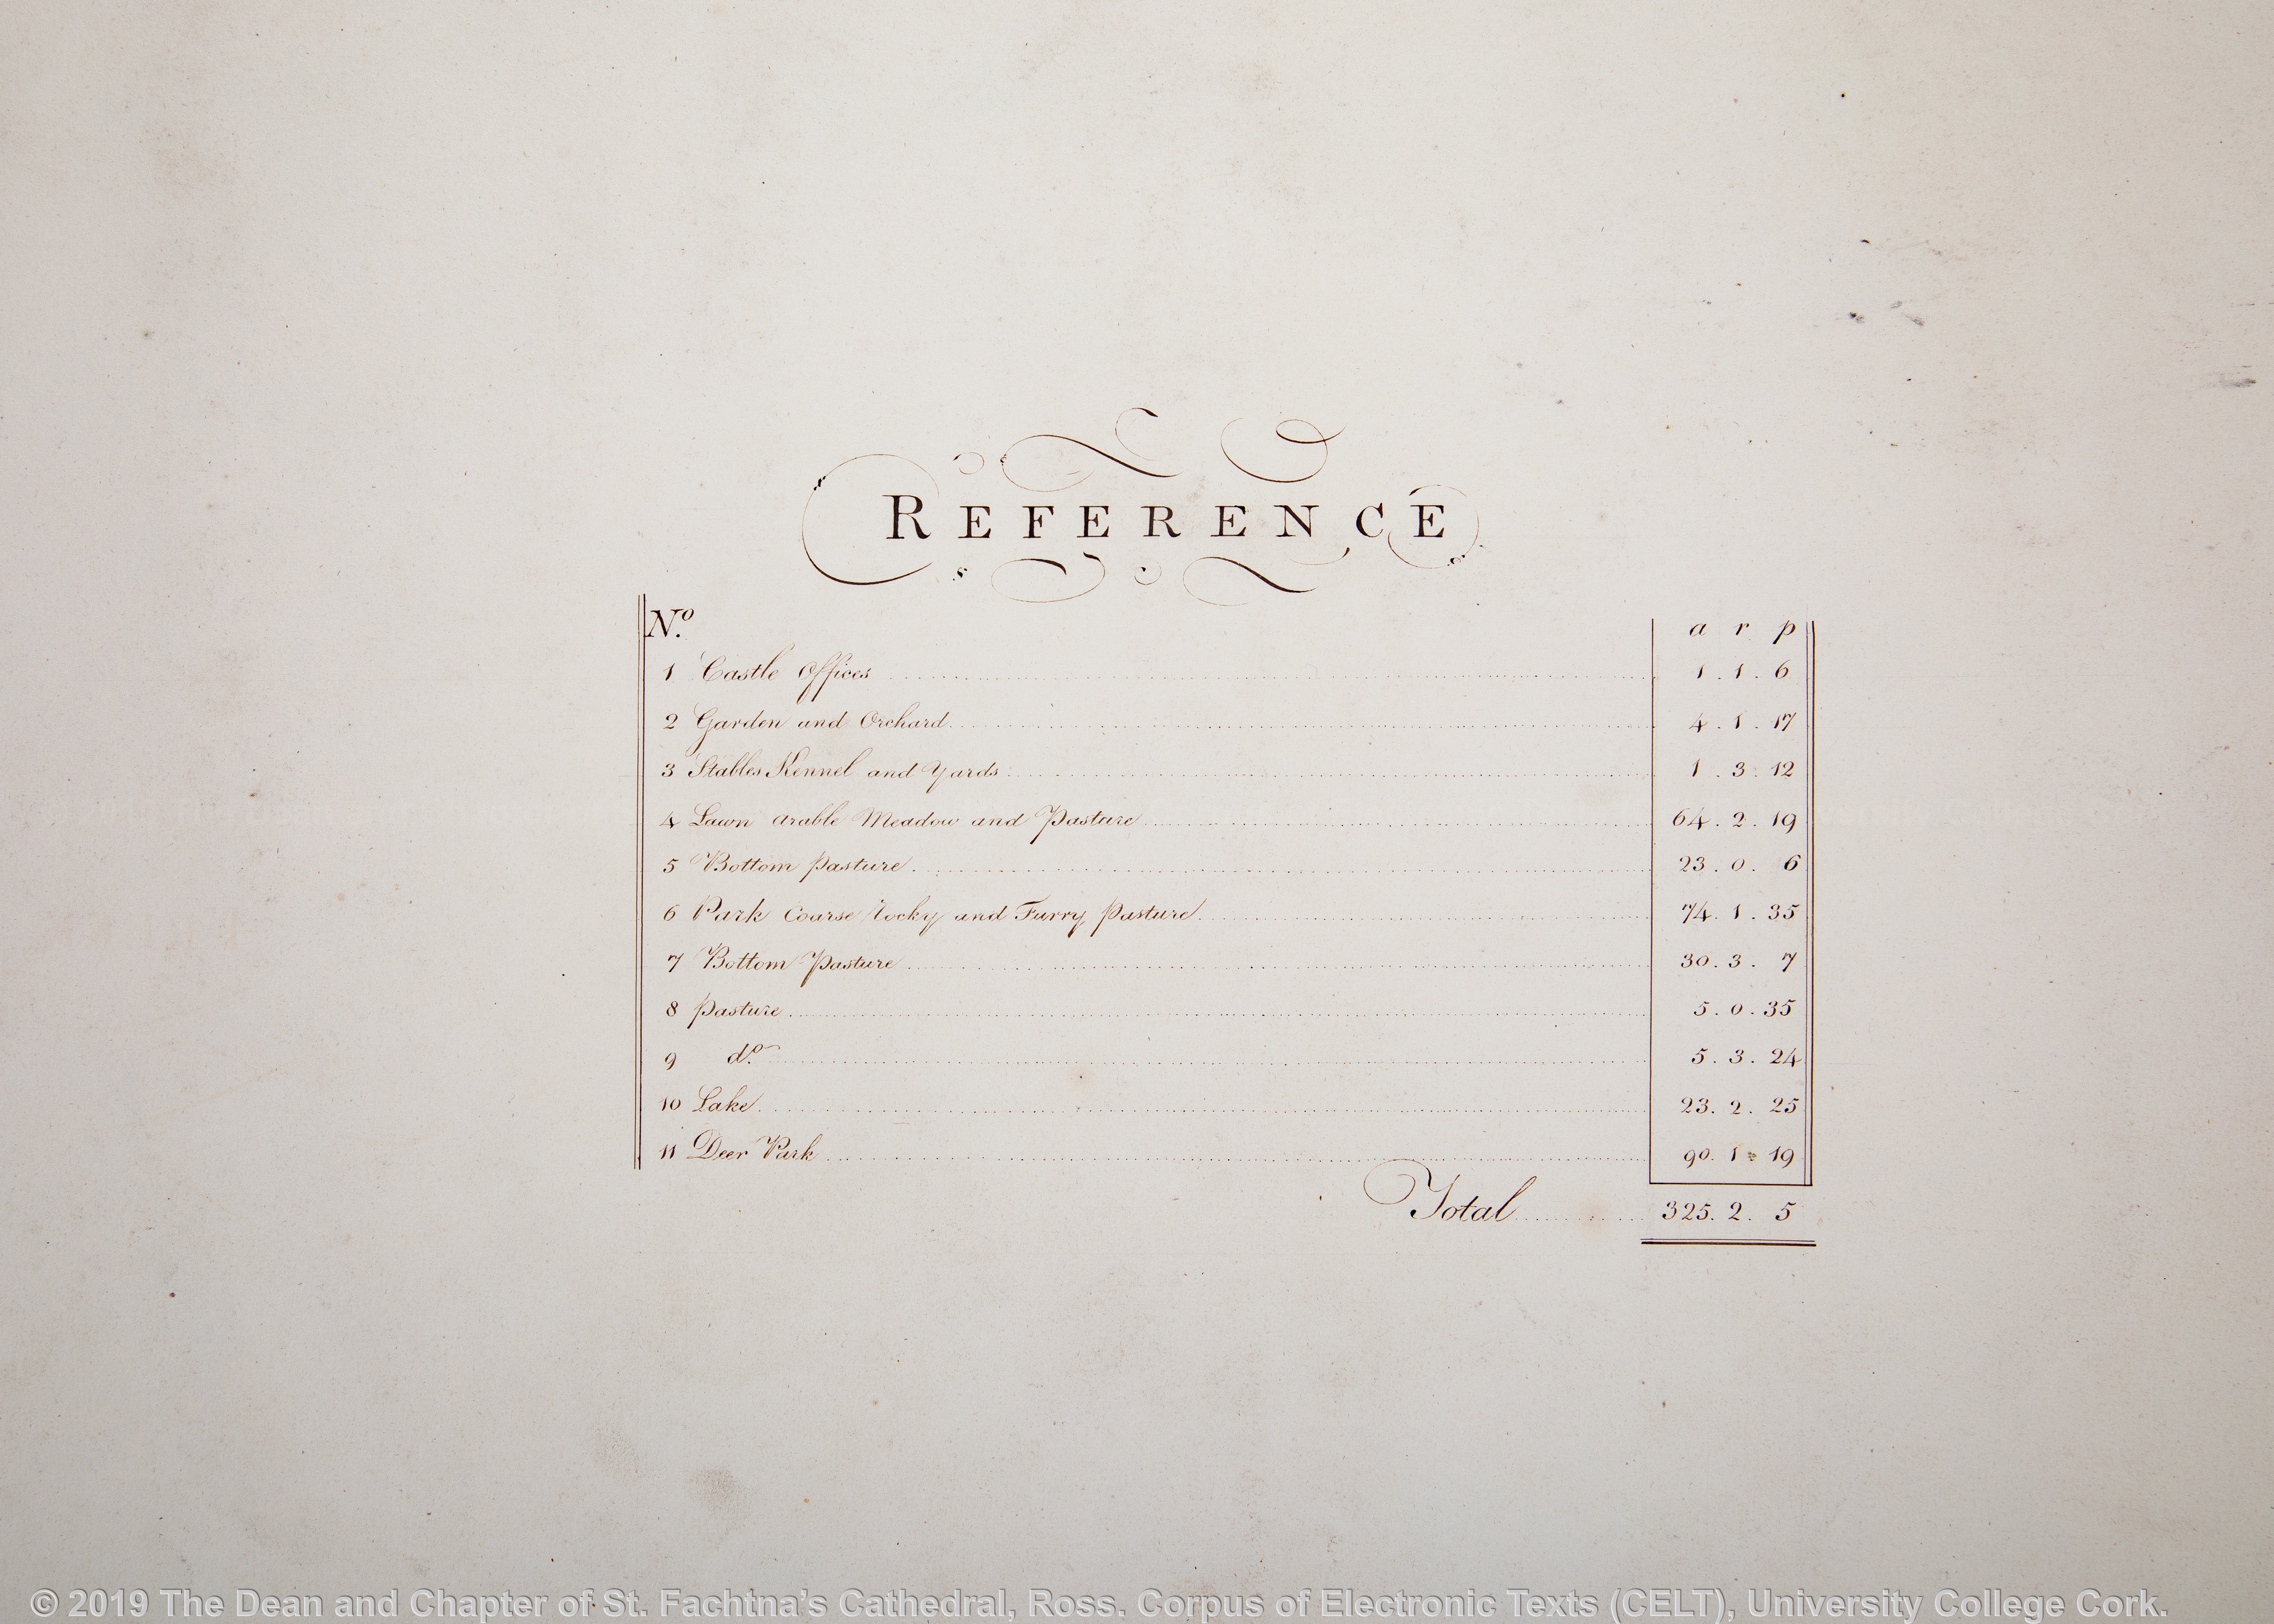 REFERENCE
No. a r p
1 Castle Offices 1 . 1 . 6
2 Garden and Orchard 4 . 1 . 17
3 Stables Kennel and Yards 1 . 3 . 12
4 Lawn arable Meadow and Pasture 64 . 2 . 19
5 Bottom pasture 23 . 0 . 6
6 Park Coarse rocky and Furry pasture 74 . 1 . 35
7 Bottom Pasture 30 . 3 . 7
8 pasture 5 . 0 . 35
9 do. 5 . 3 . 24
10 Lake 23 . 2 . 25
11 Deer Park 90 . 1 . 19
Total 325 . 2 . 5
© 2019 The Dean and Chapter of St. Fachtna’s Cathedral, Ross. Corpus of Electronic Texts (CELT), University College Cork.